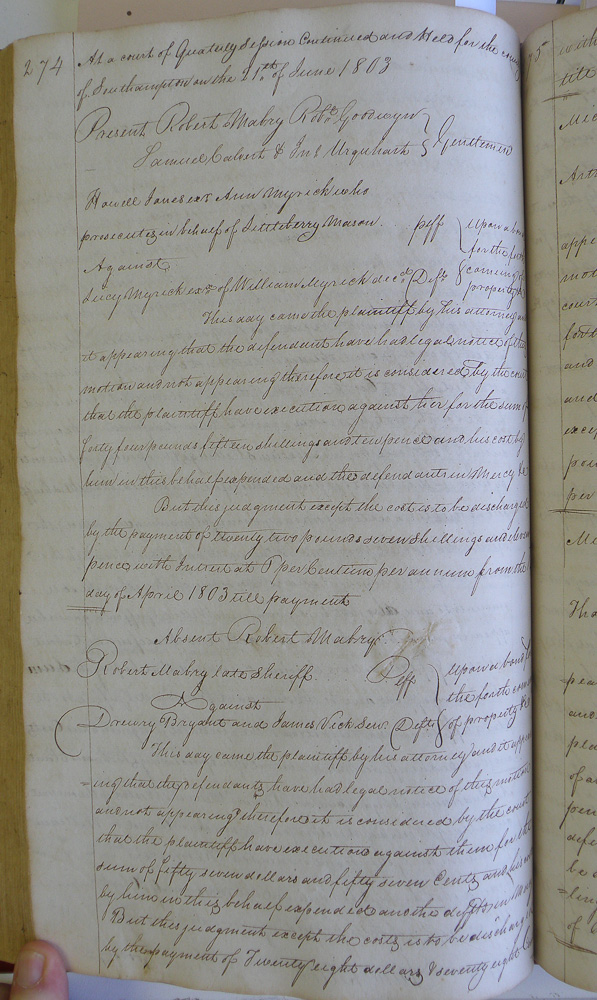 274
At a court of Quarterly Session Continued and Held for the county
of Southampton on the 21th of June 1803
Present Robert Mabry Robt. Goodwyn
Samuel Calvert & Jno Urquhart } Gentlemen
Howell Jones exr Ann Myrick who
prosecutes in behalf of Littleberry Mason. plff
Upon a bond
for the forth
coming of
property
Against
Lucy Myrick exx of William Myrick decd. Deft.
This day came the plaintiff by his attorney and
it appearing that the defendant have had legal notice of this
motion and not appearing therefore it is considered by the court
that the plaintiff have execution against her for the sum of
forty four pounds fifteen shillings and ten pence and his cost by
him in this behalf expended and the defendants in Mercy &c
But this judgment except the cost is to be discharged
by the payment of twenty two pounds seven Shillings and eleven
pence with Interest at 5 per Centum per annum from the
day of April 1803 till payment
Absent Robert Mabry
Robert Mabry late Sheriff. Plff
Upon a bond f
the forth com
of property &c
Against
Drewry Bryant and James Vick Senr. Defts
This day came the plaintiff by his attorney and it appear
=ing that the defendants have had legal notice of this motion
and not appearing therefore it is considered by the court
that the plaintiff have execution against them for the
sum of fifty seven dollars and fifty seven Cents and his
by him in this behalf expended and the defts in
But this judgment except the costs is to be discharg
by the payment of Twenty eight dollars & seventy eight
75
with
till
Mic
appe
mot
cour
forth
and
and
excep
per
Tha
plea
and
of a
pen
defe
be d